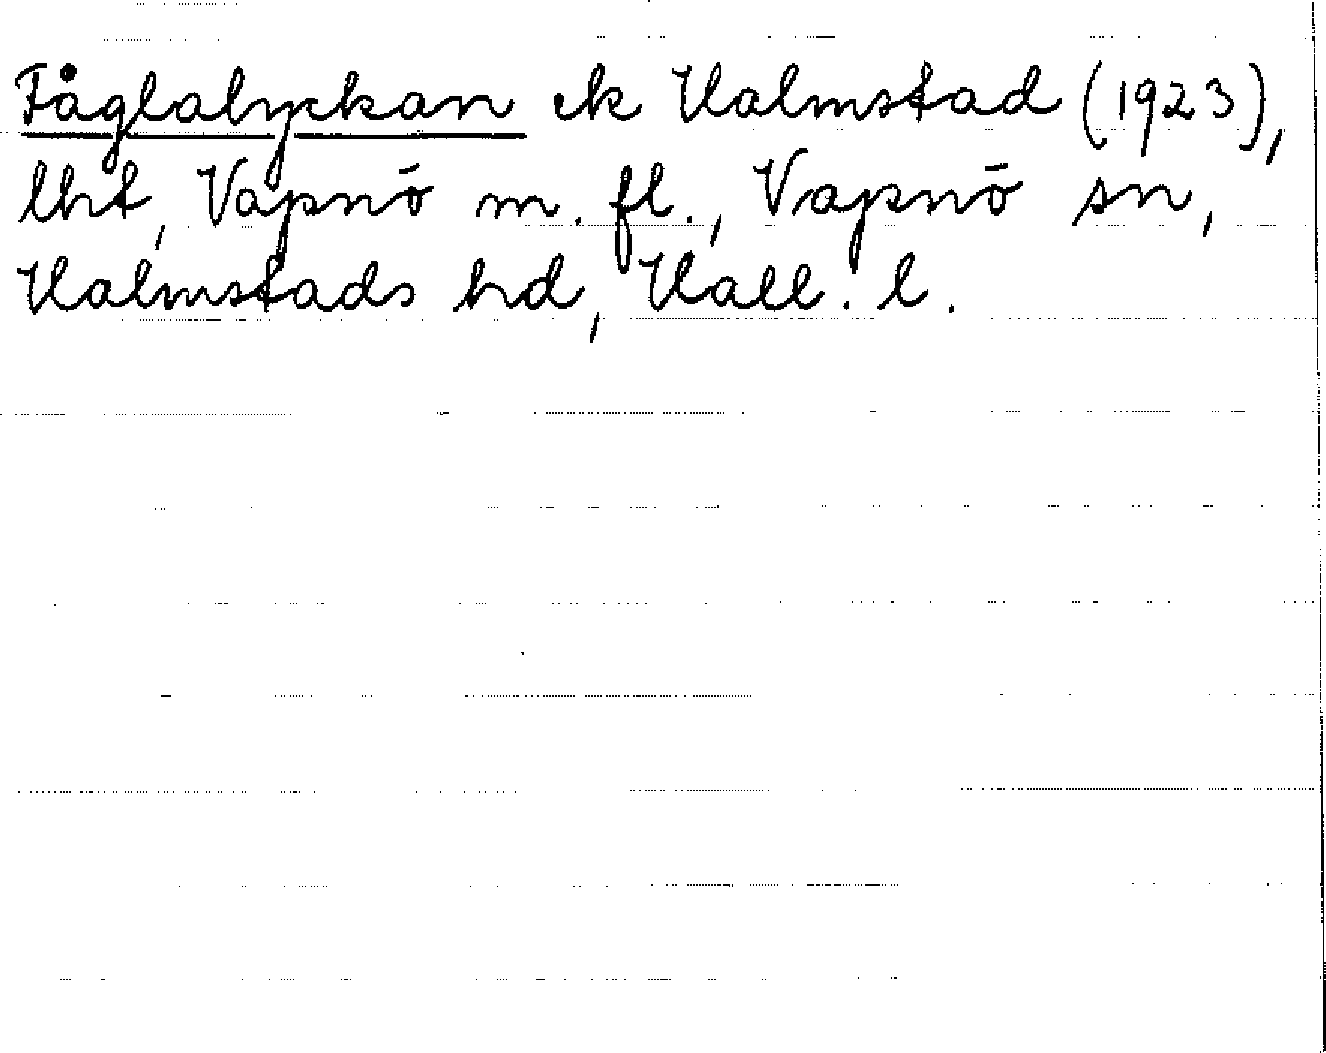 Fåglalyckan ek Halmstad (1923),
lht, Vapnö m. fl., Vapnö sn,
Halmstads hd, Hall. l.